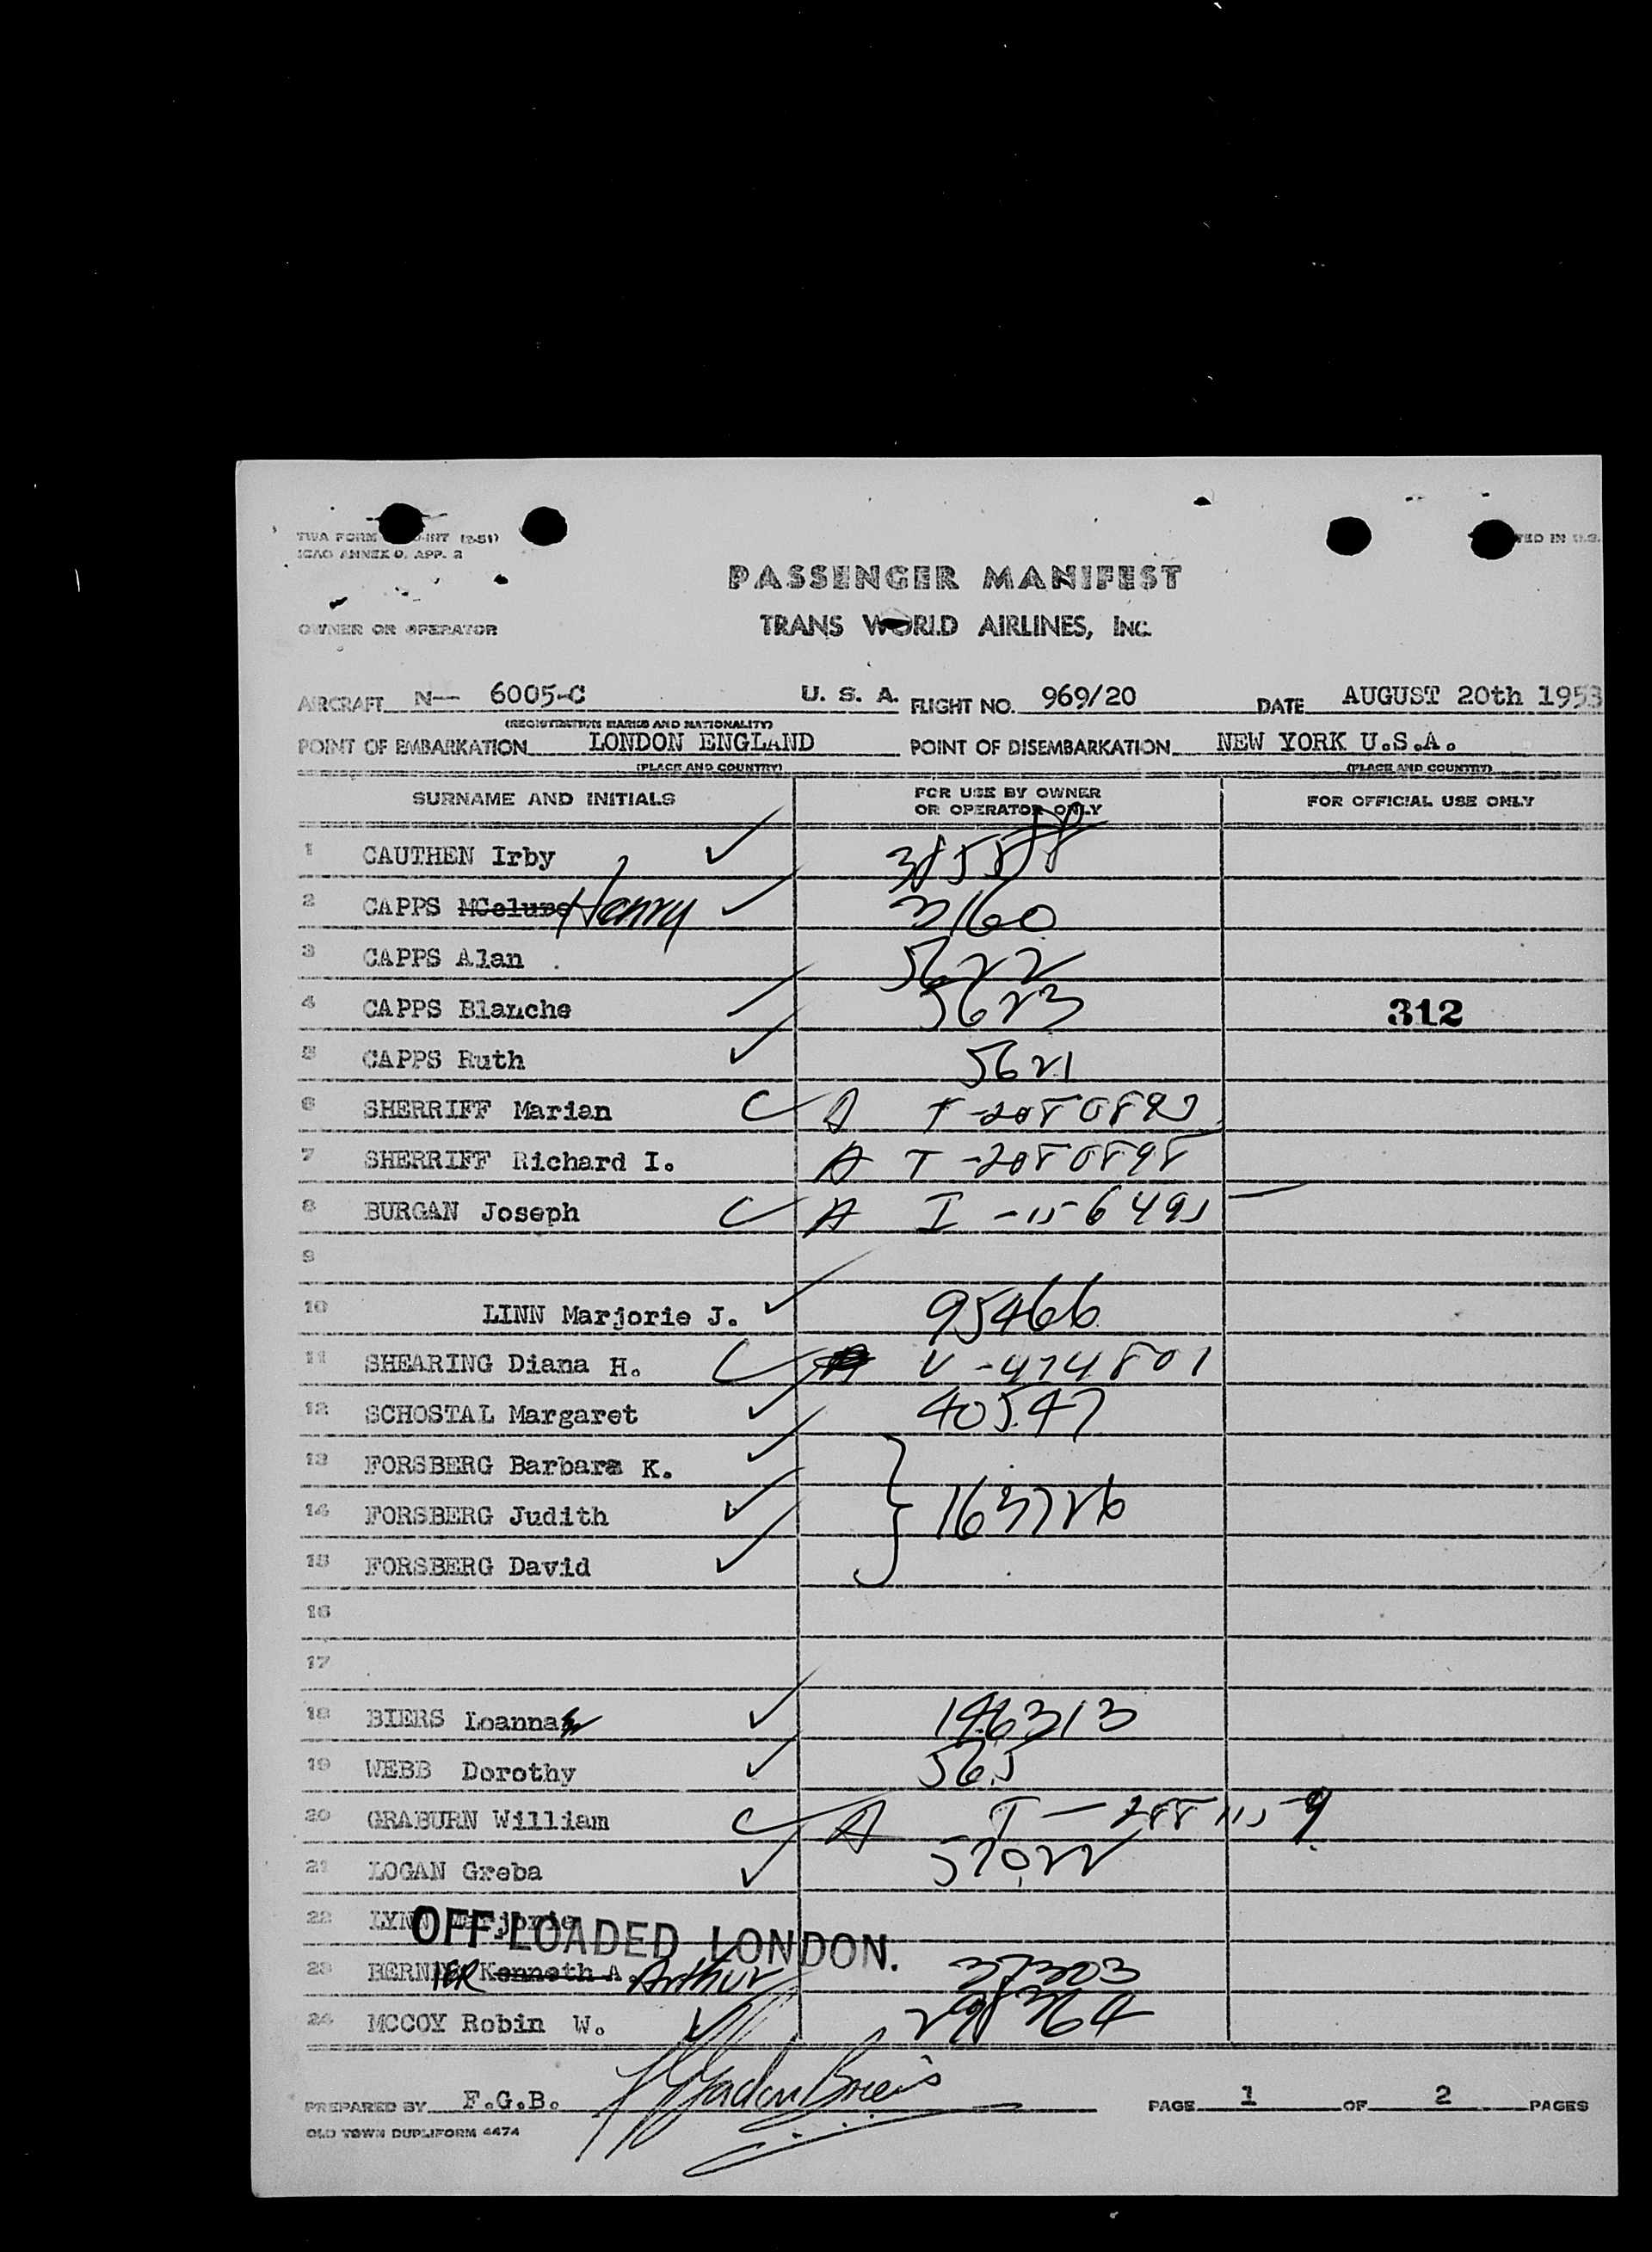 TWA FORM
ICAO ANNEX 9, APP. 2
PASSENGER MANIFEST
OWNER OR OPERATOR
TRANS WORLD AIRLINES, INC.
AIRCRAFT N— 6005-C U. S. A. FLIGHT NO. 969/20 DATE AUGUST 20th 1953
(REGISTRATION MARKS AND NATIONALITY)
POINT OF EMBARKATION LONDON ENGLAND POINT OF DISEMBARKATION NEW YORK U.S.A.
(PLACE AND COUNTRY) (PLACE AND COUNTRY)
SURNAME AND INITIALS FOR USE BY OWNER OR OPERATOR ONLY FOR OFFICIAL USE ONLY
1 CAUTHEN Irby
2 CAPPS MCclure Henry 3160
3 CAPPS Alan 5622
4 CAPPS Blanche 5623 312
5 CAPPS Ruth 5621
6 SHERRIFF Marian A
7 SHERRIFF Richard I. A T-2080898
8 BURGAN Joseph A I-
9
10 LINN Marjorie J. 95466
11 SHEARING Diana H. V-474801
12 SCHOSTAL Margaret 40547
13 FORSBERG Barbara K.
14 FORSBERG Judith 163726
15 FORSBERG David
16
17
18 BIERS Loanna 146313
19 WEBB Dorothy 565
20 GRABURN William A
21 LOGAN Greba 57022
22 LYNN Marjorie
OFF LOADED LONDON.
23 BERNIER Kenneth A. Arthur 37303
24 MCCOY Robin W. 298364
PREPARED BY F.G.B. PAGE 1 OF 2 PAGES
OLD TOWN DUPLIFORM 4474